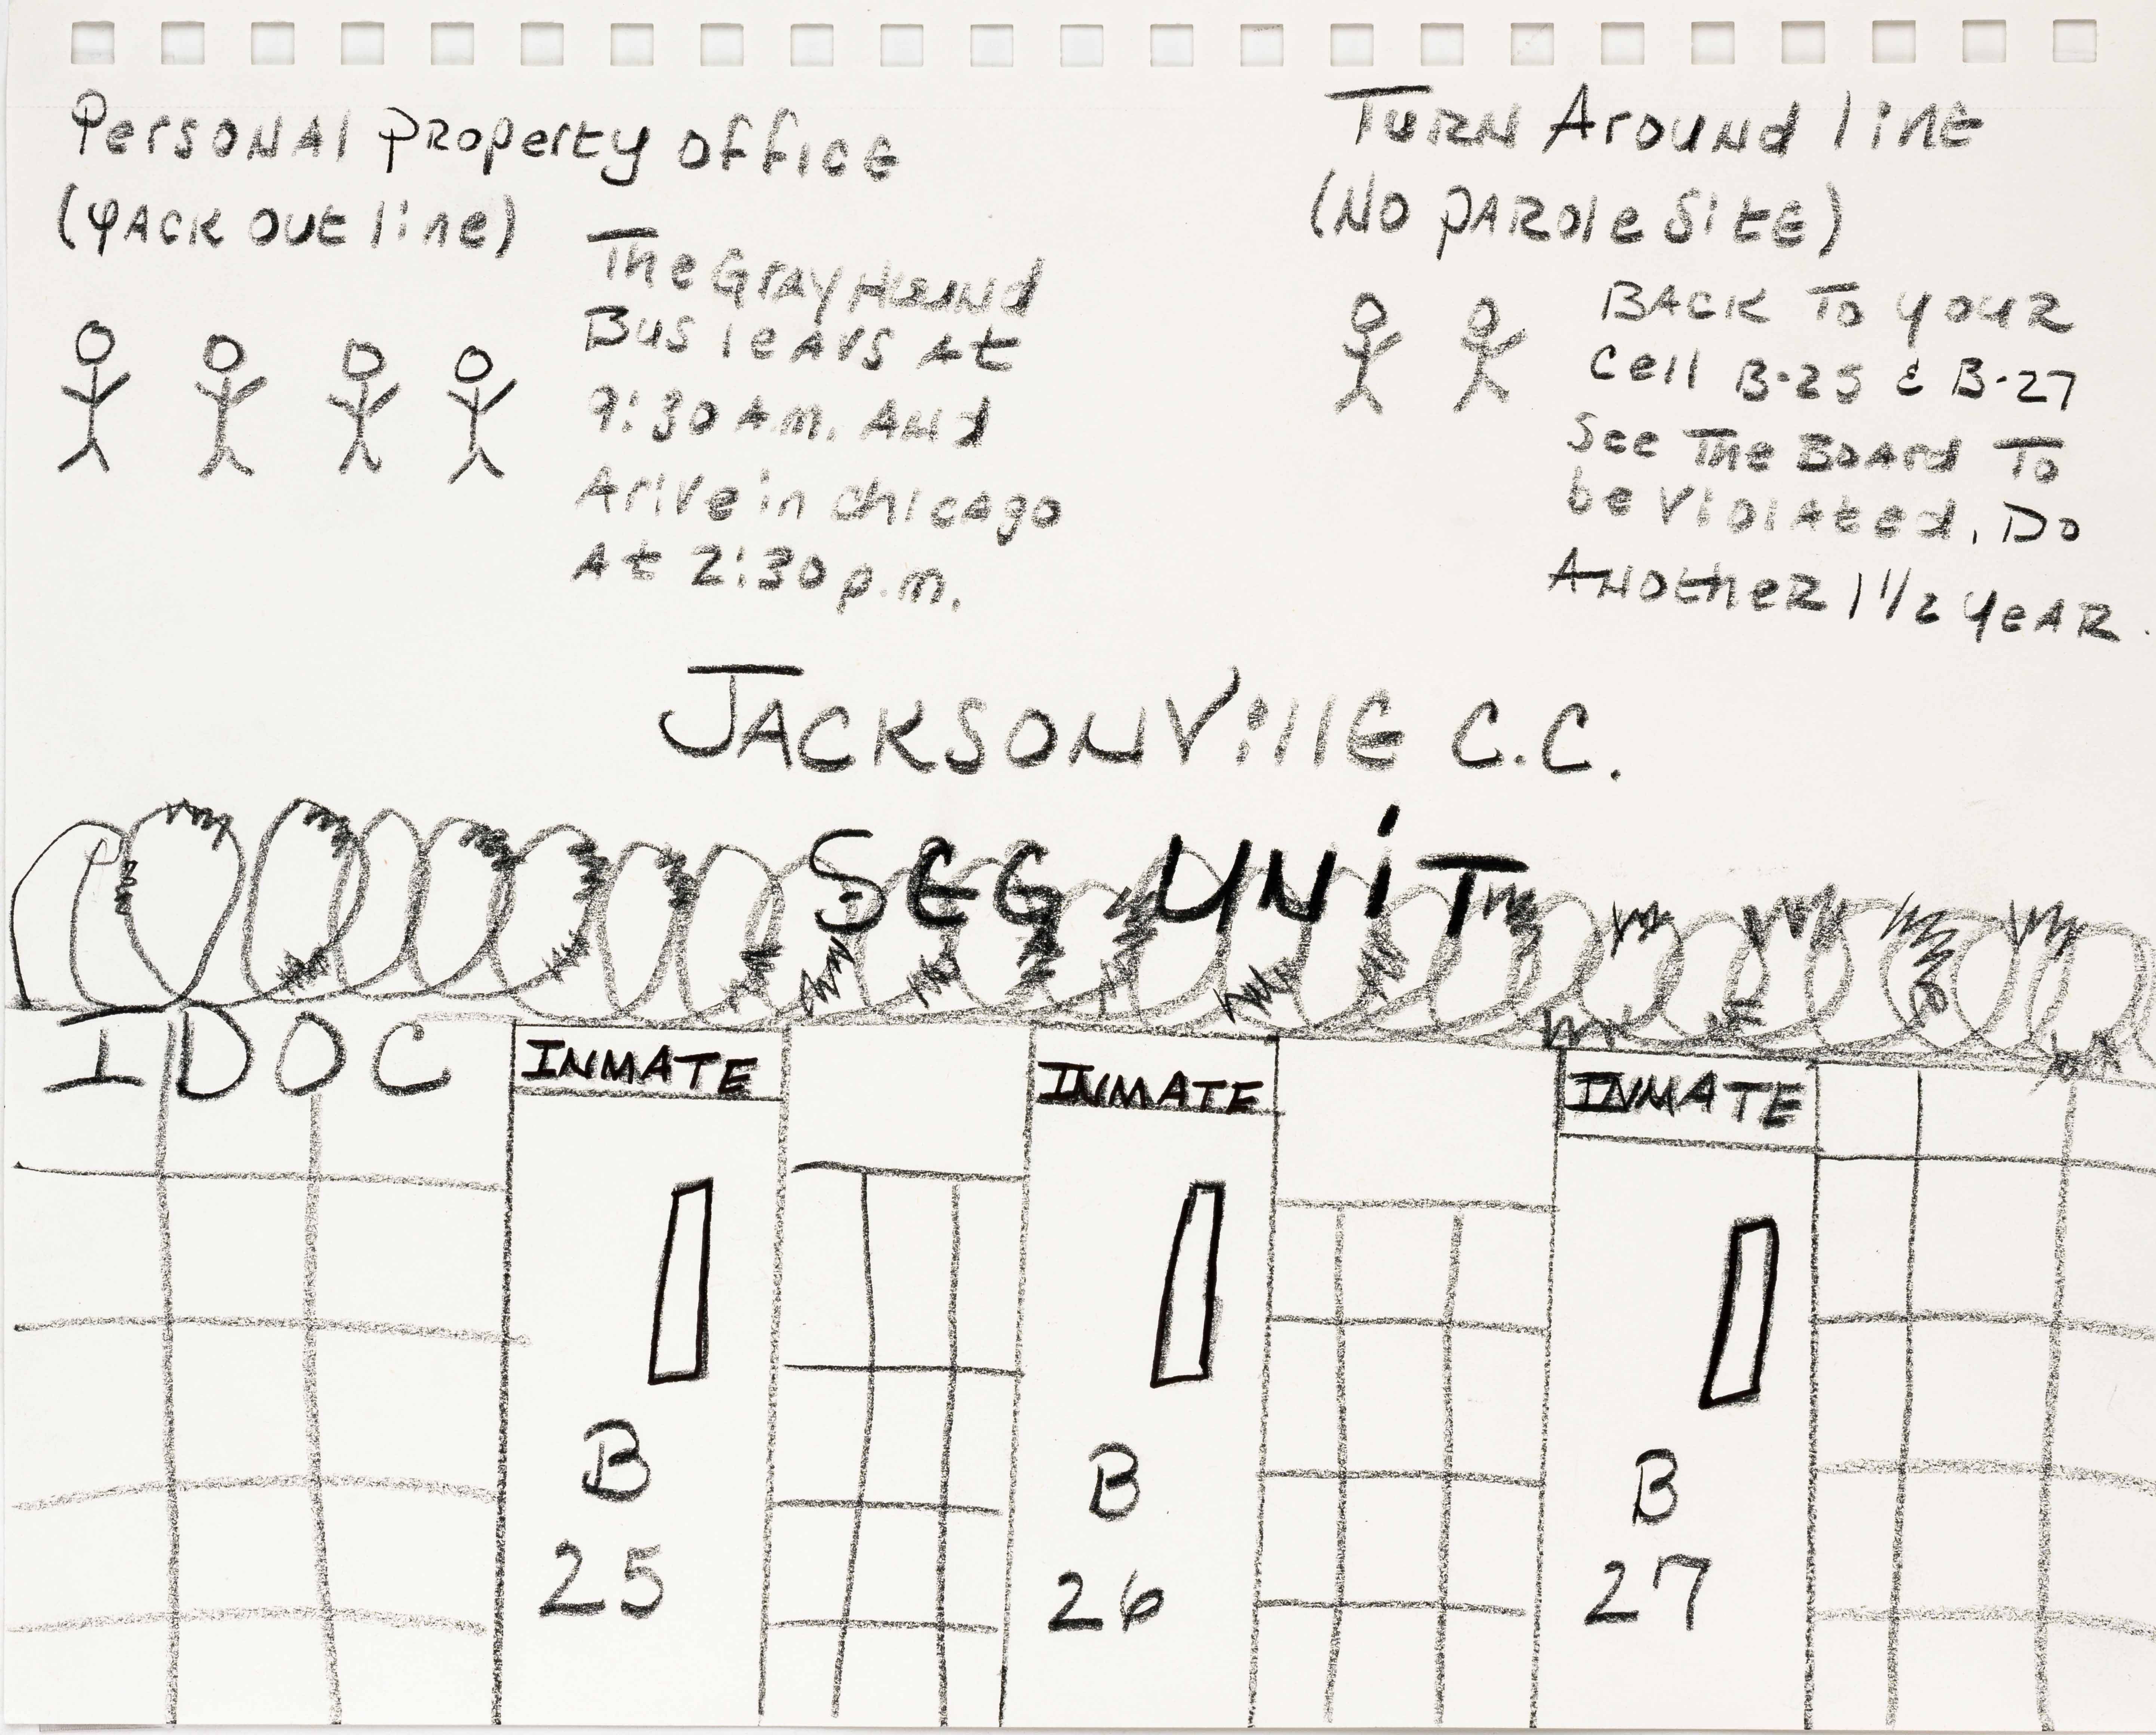 Personal Property office
(pack out line)
The Grayhound
Bus leavs at
9:30 A.m. And
Arive in chicago
At 2:30 p.m.
Turn Around line
(No parole site)
Back To your
cell B-25 & B-27
See The Board To
be violated. Do
Another 1 1/2 year.
Jacksonville C.C.
Seg Unit
IDOC
INMATE
INMATE
INMATE
B
25
B
26
B
27